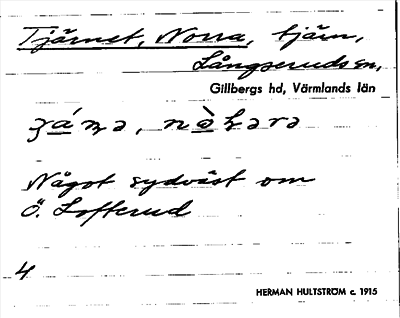 Tjärnet, Norra, tjärn,
Långseruds sn,
Gillbergs hd, Värmlands län
Något sydväst om
Ö. Lofterud
4
HERMAN HULTSTRÖM c. 1915